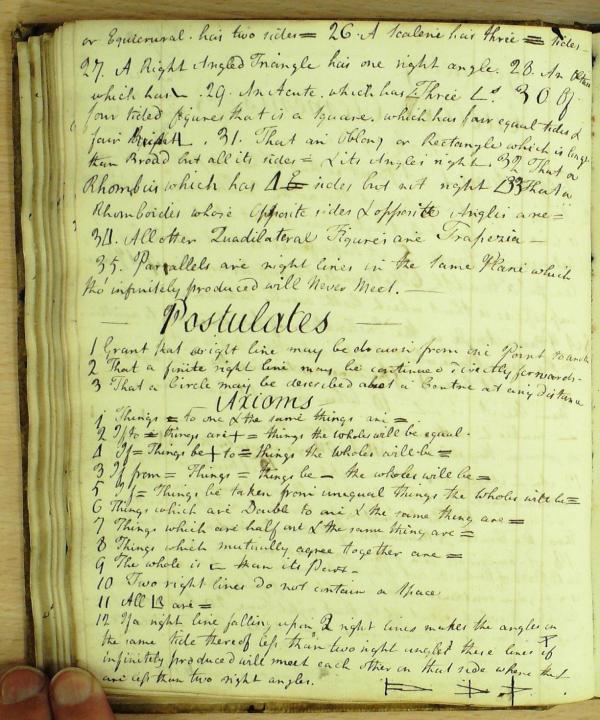 or Equicrural. has two sides = 26. A Scalene has three = sides
27. A Right Angled Triangle has one right angle. 28. An
which has . 29. An Acute. which has Three 30 Of
four sided figures that is a Square. which has four equal sides &
four Right . 31. That an Oblong or Rectangle which is longer
than Broad but all its sides = & its Angles right. 32 That a
Rhombus which has 4 = sides but not right 33 That a
Rhomboides whose Opposite sides & opposite Angles are =
34. All other Quadilateral Figures are Trapezia —
35. Parrallels are right lines in the same Plane which
tho' infinitely produced will Never Meet. —
— Postulates —
1 Grant that a right line may be drawn from one Point to another
2 That a finite right line may be continued directly forwards.
3 That a Circle may be described about a Centre at any distance
Axioms
1 Things = to one & the same things are =
2 If to = things are + = things the wholes will be equal.
4 If ≠ Things be + to = things the wholes will be ≠
3 If from = Things = things be — the wholes will be =
5 If = Things be taken from unequal things the Wholes will be ≠
6 Things which are Double to one & the same thing are =
7 Things which are half one & the same thing are =
8 Things which mutually agree together are =
9 The whole is than its Part.
10 Two right lines do not contain a Space
11 All are =
12 If a right line falling upon 2 right lines makes the angles on
the same side thereof less than two right angles these lines if
infinitely produced will meet each other on that side where the
are less than two right angles.